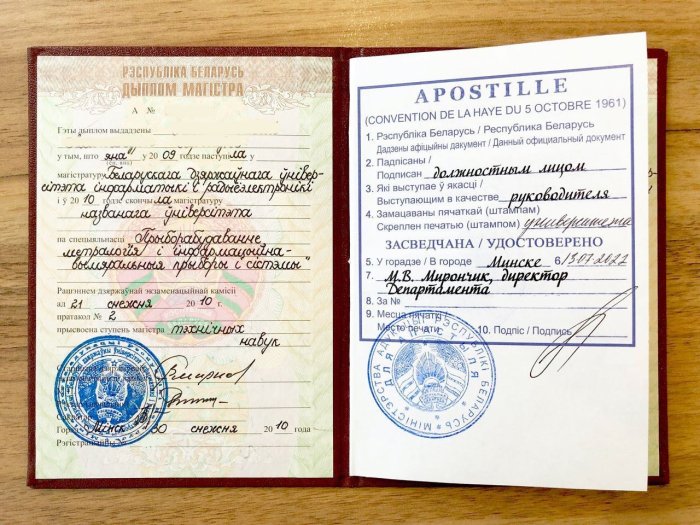 РЭСПУБЛІКА БЕЛАРУСЬ
ДЫПЛОМ МАГІСТРА
А №
Гэты дыплом выдадзены
у тым, што яна у 2009 годзе паступіла
магістратуру Беларускага дзяржаўнага ўнівер-
сітэта інфарматыкі і радыёэлектронікі
і ў 2010 годзе скончыла магістратуру
названага ўніверсітэта
па спецыяльнасці "Прыборабудаванне,
метралогія і інфармацыйна-
вымяральныя прыборы і сістэмы"
Рашэннем дзяржаўнай экзаменацыйнай камісіі
ад 21 снежня 2010 г.
пратакол № 2
прысвоена ступень магістра тэхнічных
навук
Мінск 30 снежня 2010 года
APOSTILLE
(CONVENTION DE LA HAYE DU 5 OCTOBRE 1961)
1. Рэспубліка Беларусь / Республика Беларусь
Дадзены афіцыйны дакумент / Данный официальный документ
2. Падпісаны /
Подписан должностным лицом
3. Які выступае ў якасці /
Выступающим в качестве руководителя
4. Замацаваны пячаткай (штампам)
Скреплен печатью (штампом) университета
ЗАСВЕДЧАНА / УДОСТОВЕРЕНО
5. У горадзе / В городе Минске 6. 13.07.2022
7. М.В. Мирончик, директор
Департамента
8. За №
9. Месца пячаткі
Место печати 10. Подпіс / Подпись
МІНІСТЭРСТВА АДУКАЦЫІ РЭСПУБЛІКІ БЕЛАРУСЬ
ДЛЯ АПОСТЫЛЯ